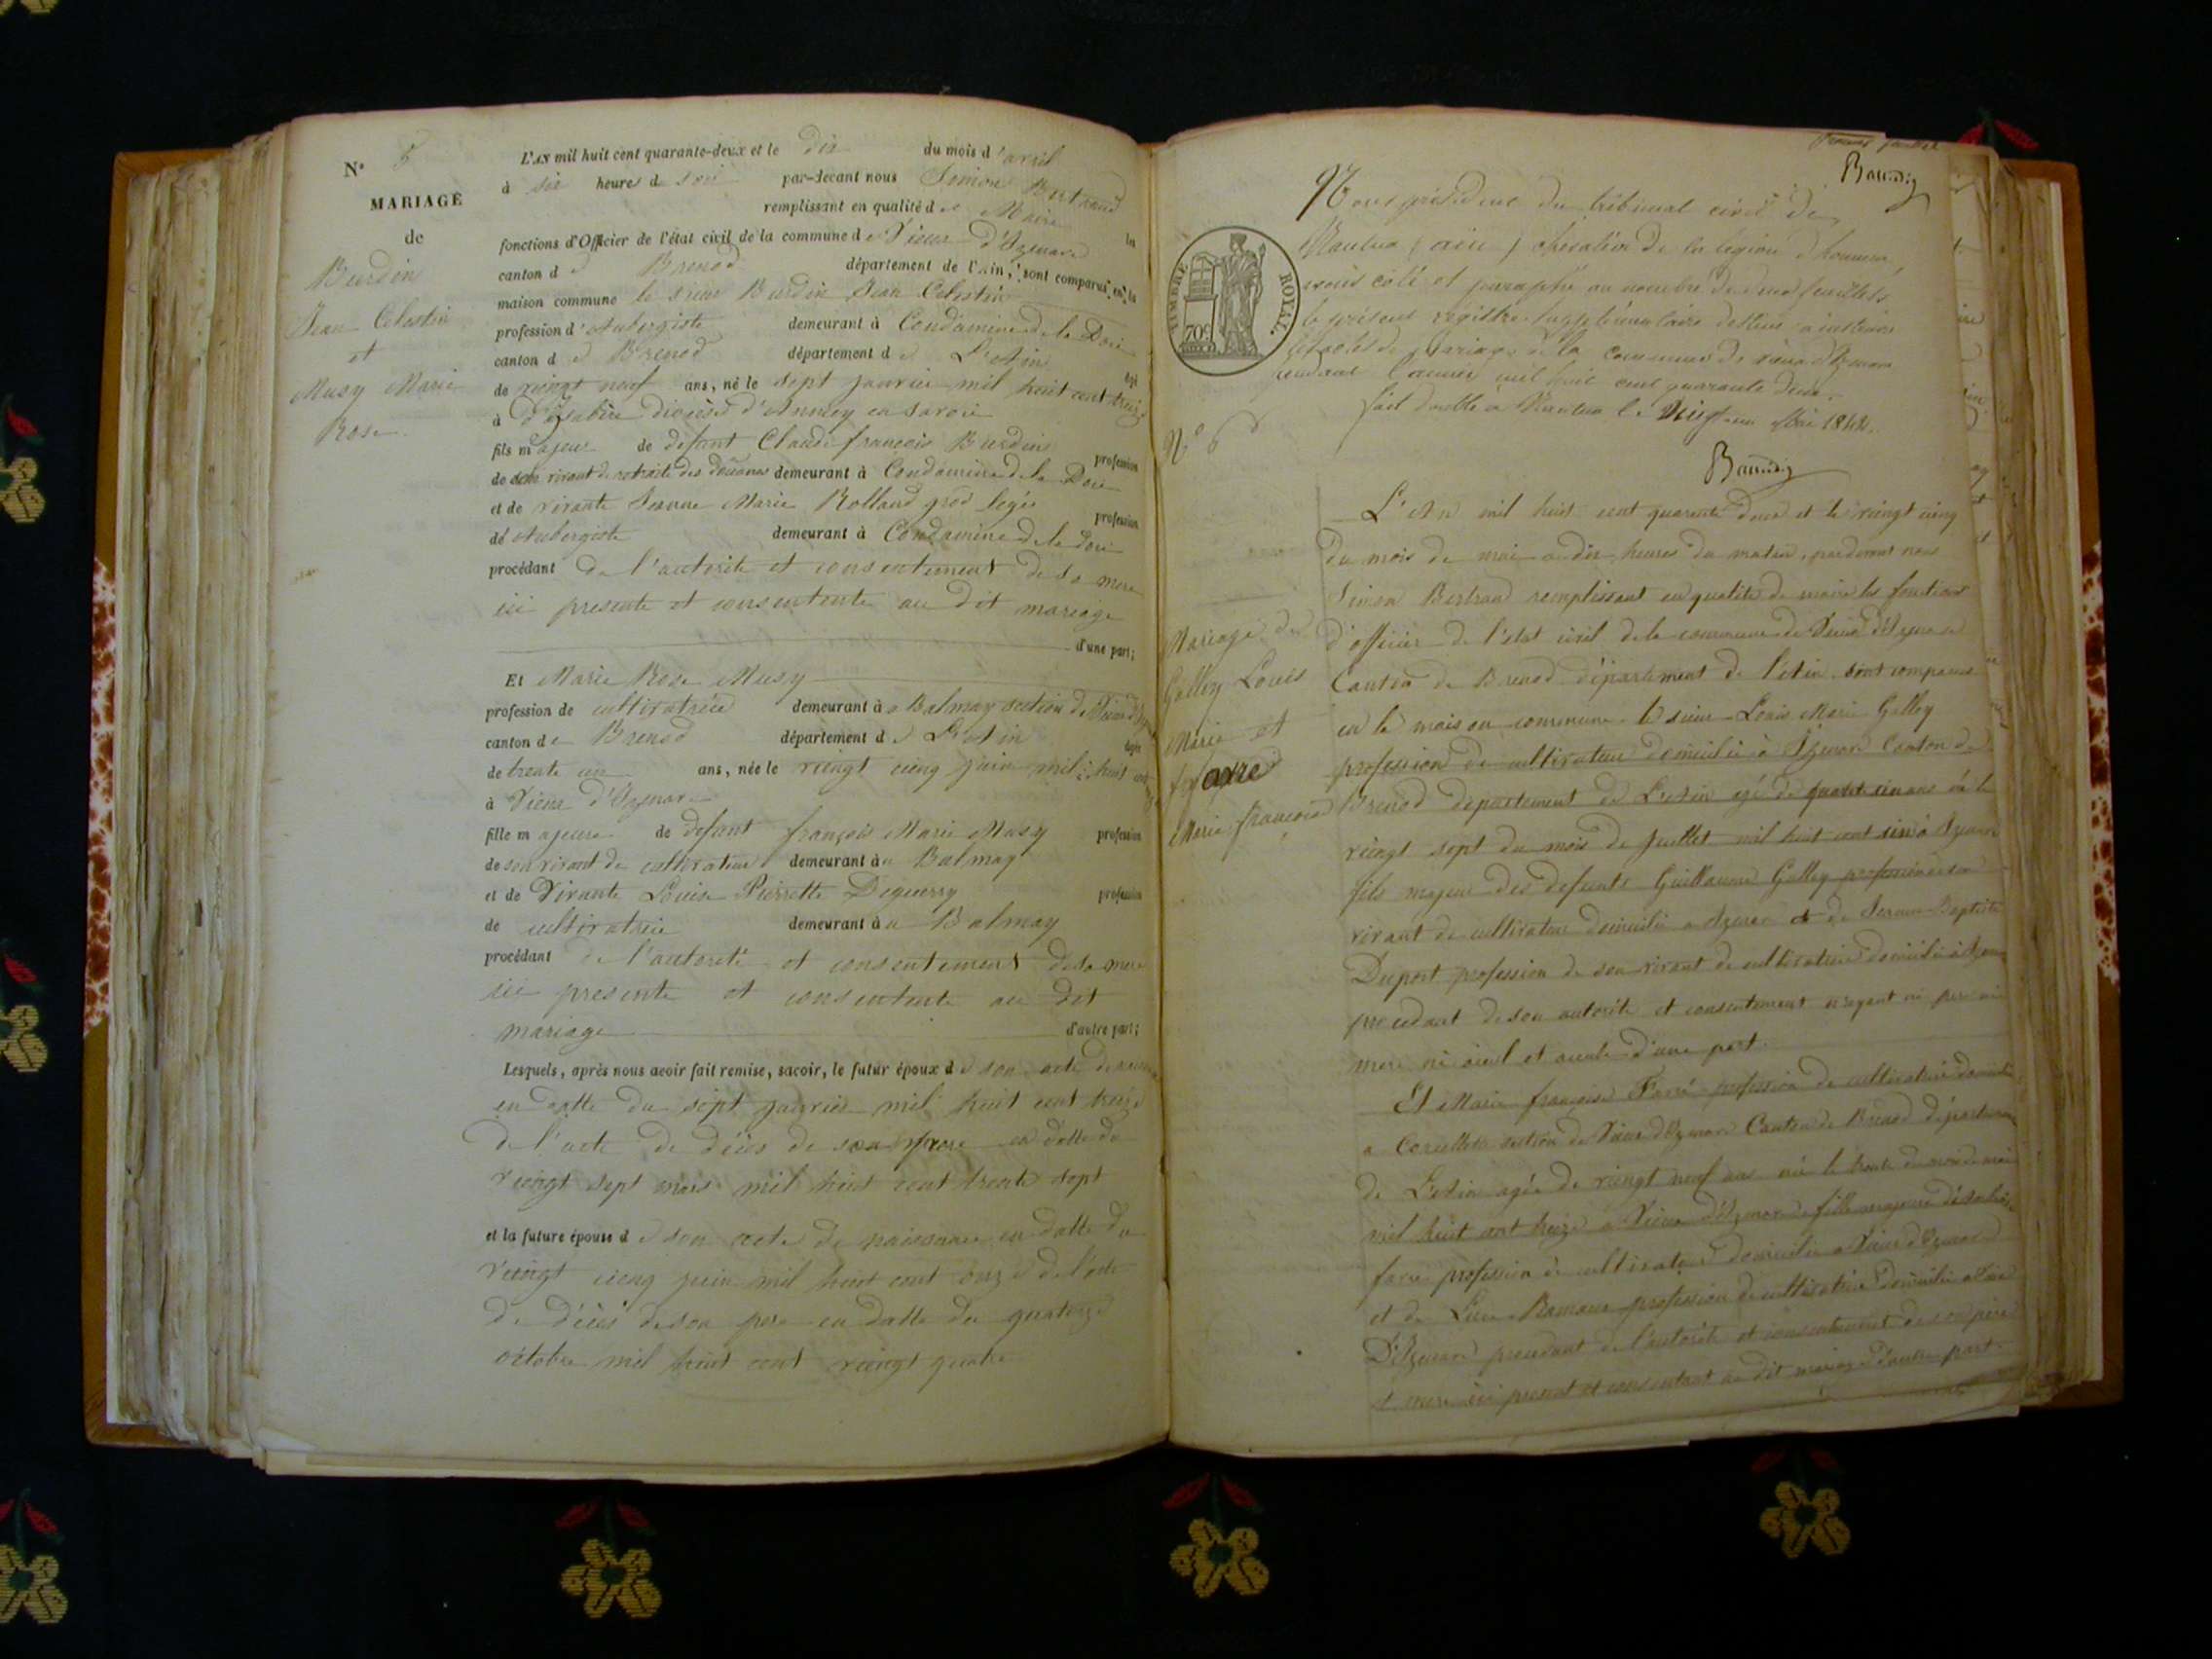 N° 5
MARIAGE
de
Burdin
Jean Celestin
et
Musy Marie
Rose
L'AN mil huit cent quarante-deux et le dix du mois d'avril
à six heures d soir par-devant nous Simon Bertrand
remplissant en qualité de Maire les
fonctions d'Officier de l'état civil de la commune de Vieux d'Izenave
canton de Brenod département de l'ain, sont comparus en la
maison commune le sieur Burdin Jean Celestin
profession d'Aubergiste demeurant à Condamine de la Doie
canton de Brenod département de L'Ain
agé de vingt neuf ans, né le sept janvier mil huit cent treize
à diocèse d'Annecy en Savoie
fils majeur de defunt Claude françois Burdin profession
de son vivant de retraite des douanes demeurant à Condamine de la Doie
et de vivante Jeanne Marie Rolland profession
de Aubergiste demeurant à Condamine de la Doie
procédant de l'autorite et consentement de sa mere
ici presente et consentente au dit mareage
d'une part;
Et Marie Rose Musy
profession de cultivatrice demeurant à Balmay section de Vieux d'Izenave
canton de Brenod département de L'Ain agée
de trente un ans, née le vingt cinq juin mil huit cent
à Vieux d'Izenave
fille majeure de defunt françois Marie Musy profession
de son vivant de cultivateur demeurant à Balmay
et de Vivante Louise Pierrette Deguerry profession
de cultivatrice demeurant à Balmay
procédant de l'autorité et consentement de sa mere
ici presente et consentente au dit
mariage d'autre part;
Lesquels, après nous avoir fait remise, savoir, le futur époux de son acte de
en datte du sept janvier mil huit cent treize
de l'acte de décès de son père en datte du
vingt sept mars mil huit cent trente sept
et la future épouse de son acte de naissance en datte du
vingt cinq juin mil huit cent onze de l'acte
de décès de son pere en datte du quatorze
octobre mil huit cent vingt quatre
Baudin
Nous président du tribunal civil de
Nantua (ain) chevalier de la légion d'honneur,
avons coté et paraphé au nombre de deux feuillets
le présent registre supplémentaire destiné à inscrire
les actes de mariage de la commune de vieux d'Izenave
pendant l'année mil huit cent quarante deux.
fait double à Nantua le Mai 1842.
Baudin
TIMBRE ROYAL.
70c
N° 6
Mariage de
Galley Louis
Marie et
farre
Marie françoise
L'An mil huit cent quarante deux et le vingt cinq
du mois de mai a dix heures du matin, pardevant nous
Simon Bertrand remplissant en qualité de maire les fonctions
d'officier de l'etat civil de la commune de Vieux d'Izenave
Canton de Brenod département de l'Ain sont comparus
en la maison commune le sieur Louis Marie Galley
profession de cultivateur domicilié à Izenave Canton de
Brenod departement de L'Ain agé de ans né le
vingt sept du mois de Juillet mil huit cent six à Izenave
fils majeur des defunts Guillaume Galley profession de son
vivant de cultivateur domicilié a Izenave et de Jeanne Baptiste
Duport profession de son vivant de cultivatrice domiciliée à Izenave
procedant de son autorité et consentement n'ayant ni pere ni
mere ni aieul et aieule d'une part.
Et Marie françoise Farre profession de cultivatrice domiciliée
a section de Vieux d'Izenave Canton de Brenod département
de L'Ain agée de vingt neuf ans née le trente du mois de mai
mil huit cent treize à Vieux d'Izenave fille majeure
farre profession de cultivateur domicilié a Vieux d'Izenave
et de profession de cultivatrice domiciliée a Vieux
D'Izenave procedant de l'autorité et consentement de son père
et mere ici present et consentant au dit mariage d'autre part.